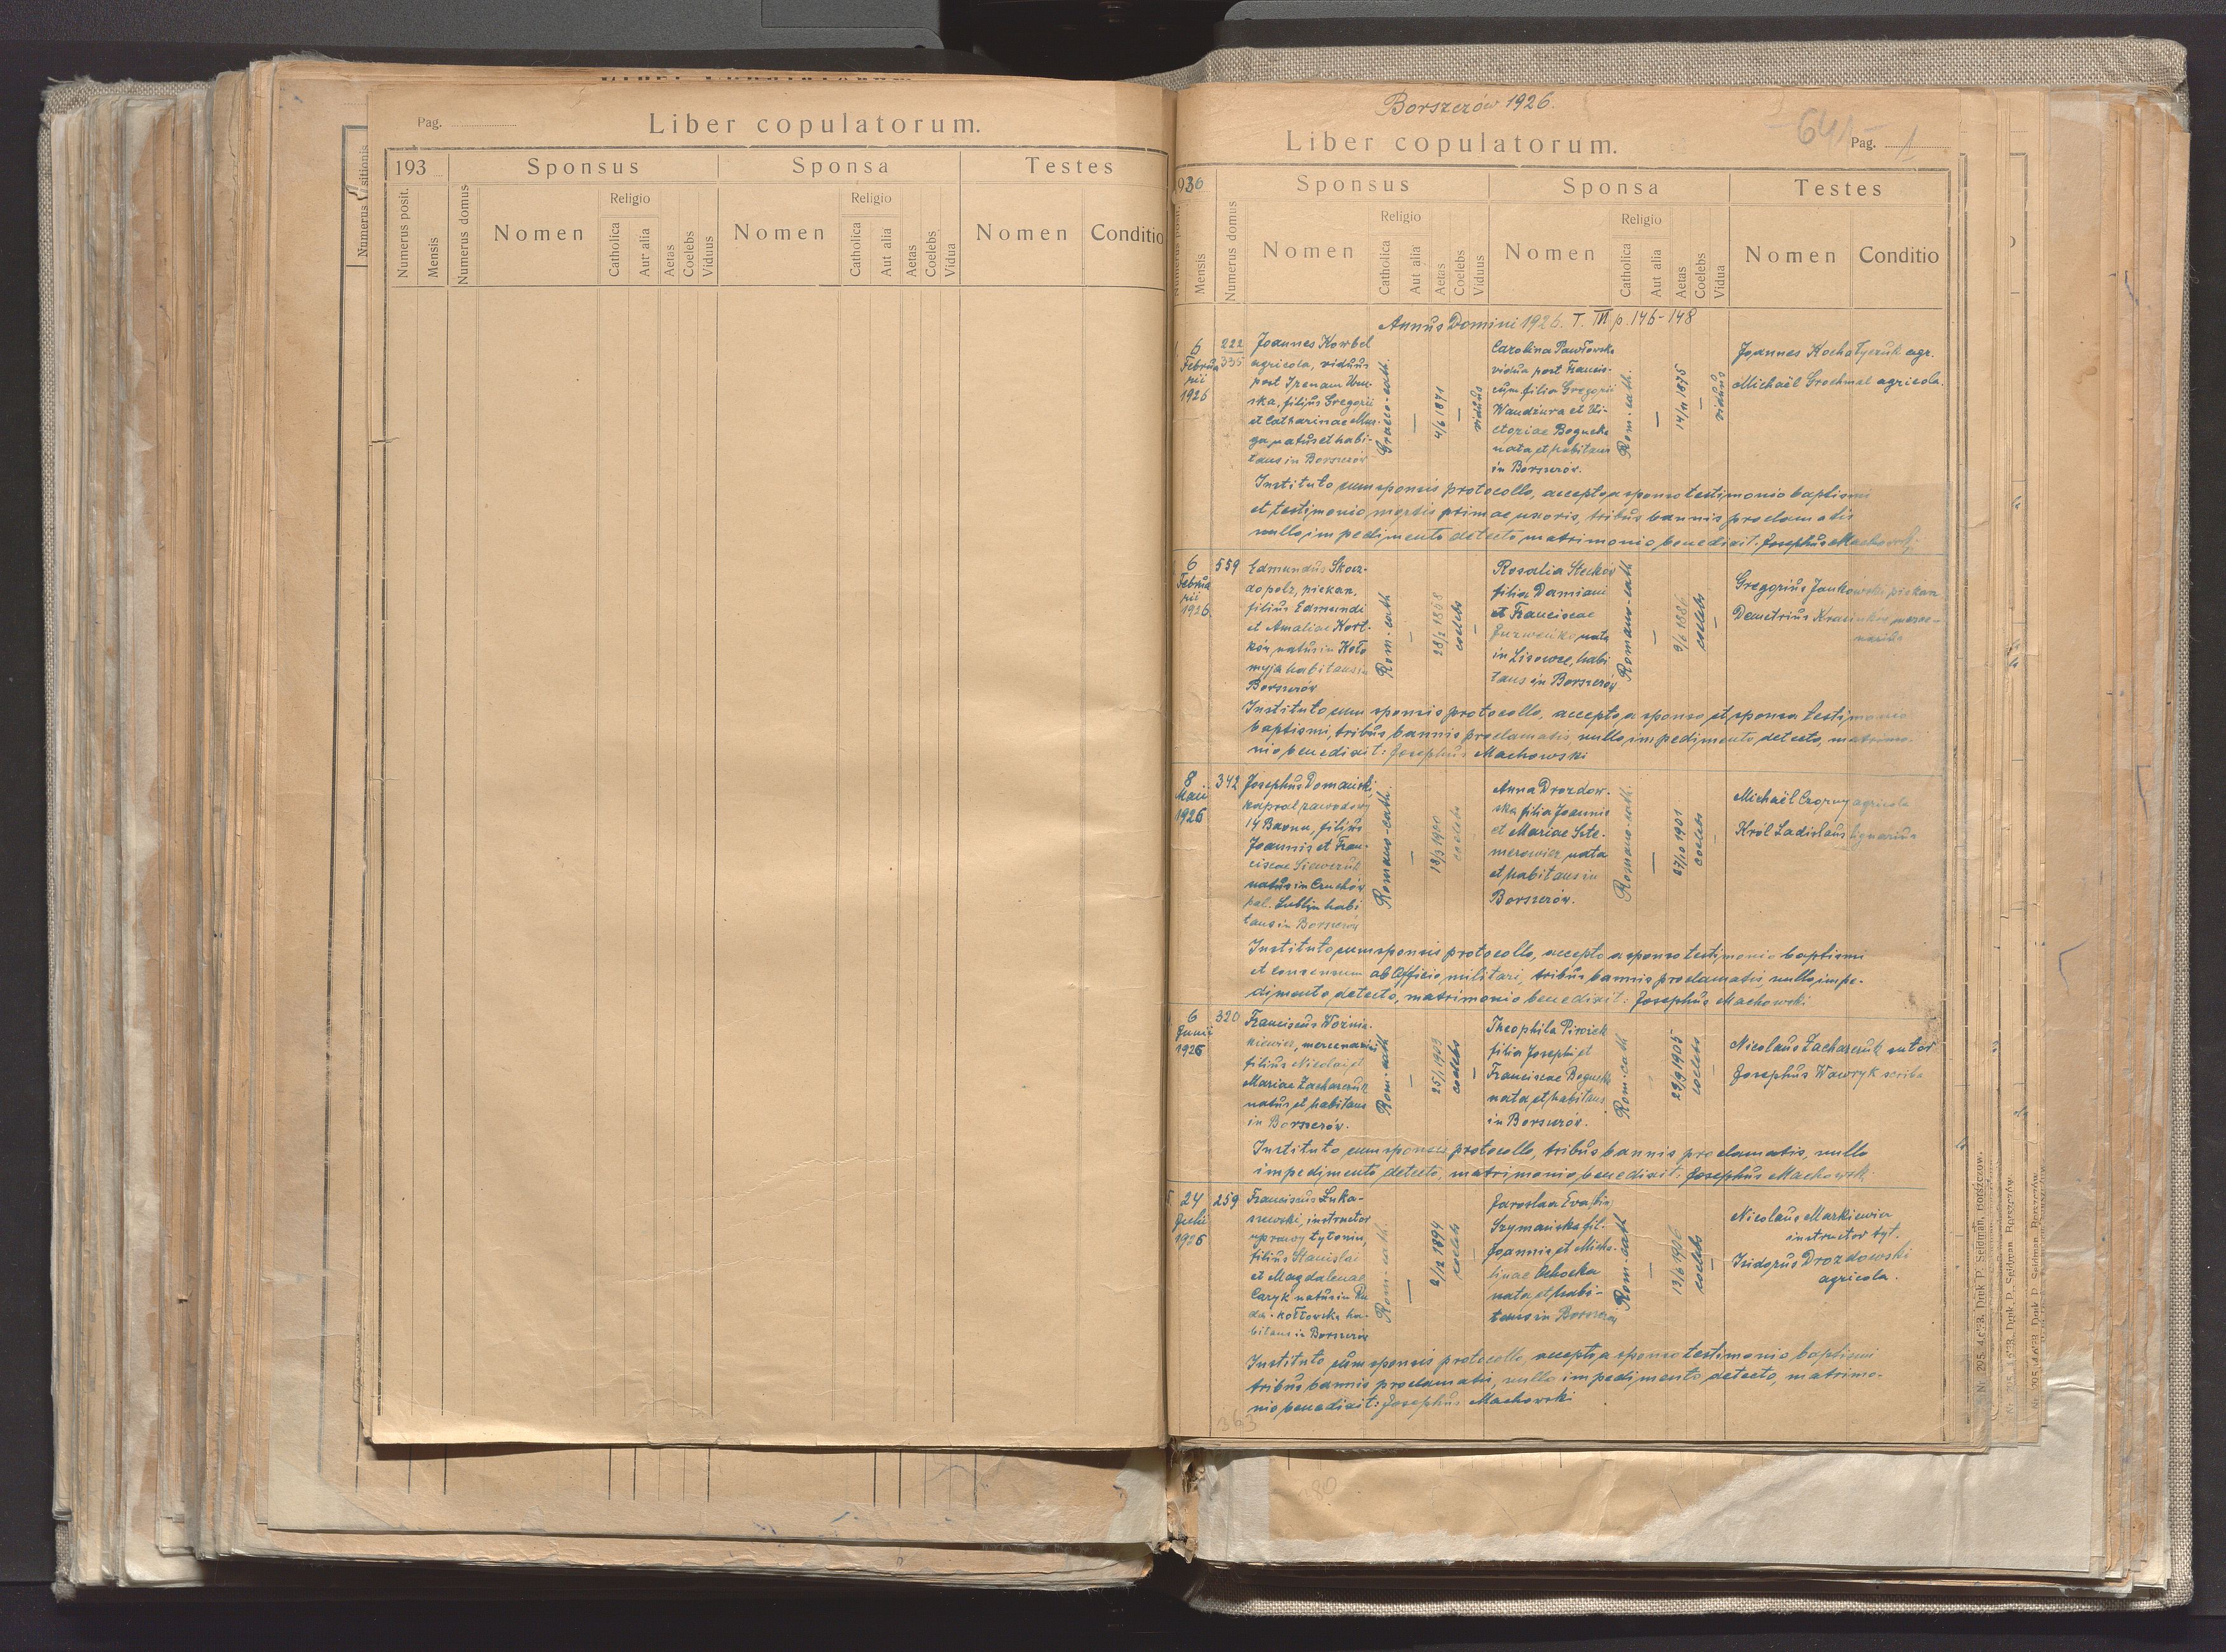 Pag.
Liber copulatorum.
193
Sponsus
Sponsa
Testes
Numerus posit.
Mensis
Numerus domus
Nomen
Religio
Catholica
Aut alia
Aetas
Coelebs
Viduus
Nomen
Religio
Catholica
Aut alia
Aetas
Coelebs
Vidua
Nomen
Conditio
Borszczów 1926.
Liber copulatorum.
641
Pag. 1
1936
Sponsus
Sponsa
Testes
Numerus posit.
Mensis
Numerus domus
Nomen
Religio
Catholica
Aut alia
Aetas
Coelebs
Viduus
Nomen
Religio
Catholica
Aut alia
Aetas
Coelebs
Vidua
Nomen
Conditio
Annus Domini 1926. T. III p. 146-148
6
Februa
rii
1926
222
335
Joannes Kowbel
agricola, viduus
post Irenam
ska, filius Gregorii
et Catharinae
natus et habi-
tans in Borszczów
Graeco-cath.
—
4/6 1871
—
viduus
Carolina Pawłowska
vidua post Francis-
cum filia Gregorii
Wandzura et Vi-
ctoriae Bogucka
nata et habitans
in Borszczów.
Rom.-cath.
—
14/11 1875
—
viduus
Joannes Kochatyczuk agr.
Michaël Grochmal agricola.
Instituto cum sponsis protocollo, accepto a sponso testimonio baptismi
et testimonio mortis primae uxoris, tribus bannis proclamatis
nullo impedimento detecto matrimonio benedixit. Josephus Machowski
6
Februa
rii
1926.
559
Edmundus Skar-
dopolz, piekarz,
filius Edmundi
et Amaliae Kort-
natus in Koło
myja habitans in
Borszczów
Rom.-cath
—
28/2 1868
coelebs
—
Rosalia Steckow
filia Damiani
et Franciscae
nata
in Lisowce, habi
tans in Borszczów
Romano-cath
—
9/6 1886
coelebs
—
Gregorius Jankowski piekarz
Demetrius
Instituto cum sponsis protocollo, accepto a sponso et sponsa testimonio
baptismi, tribus bannis proclamatis nullo impedimento detecto, matrimo-
nio benedixit: Josephus Machowski
8
Maii
1926
342
Josephus Domański,
kapral zawodowy
14 Baonu, filius
Joannis et Fran-
ciscae
natus in
pal. Lublin habi
tans in Borszczów
Romano-cath.
—
18/3 1900
coelebs
Anna Drozdow-
ska filia Joannis
et Mariae
nata
et habitans in
Borszczów.
Romano-cath.
—
27/10 1901
coelebs
—
Michaël Czorny agricola
Król Ladislaus lignarius
Instituto cum sponsis protocollo, accepto a sponso testimonio baptismi
et consensum ab Officio militari, tribus bannis proclamatis nullo impe-
dimento detecto, matrimonio benedixit: Josephus Machowski
6
Junii
1926
320
Franciscus Woźnia-
kiewicz, mercenarius
filius Nicolai et
Mariae Zacharczuk
natus et habitans
in Borszczów.
Rom.-cath
—
25/1 1903
coelebs
—
Theophila Piwick
filia Josephi et
Franciscae Bogucka
nata et habitans
in Borszczów.
Rom.-cath
—
29/9 1905
coelebs
—
Nicolaus Zacharczuk sutor
Josephus Wawryk scriba
Instituto cum sponsis protocollo, tribus bannis proclamatis, nullo
impedimento detecto, matrimonio benedixit: Josephus Machowski
5.
24
Julii
1926
259
Franciscus Łuka-
szewski, instructor
uprawy tytoniu,
filius Stanislai
et Magdalenae
Caryk natus in Ru
da-kołtowska ha-
bitans in Borszczów
Rom.-cath.
—
2/12 1894
coelebs
—
Jarosłaa Eva
Szymańska fil.
Joannis et Micha-
linae Ochocka
nata et habi-
tans in Borszczów
Rom.-cath
—
13/6 1906
coelebs
—
Nicolaus Markiewicz
instructor tyt.
Isidorus Drozdowski
agricola.
Instituto cum sponsis protocollo, accepto a sponso testimonio baptismi
tribus bannis proclamatis, nullo impedimento detecto, matrimo-
nio benedixit: Josephus Machowski
363
380
Druk P. Seidman, Borszczów.